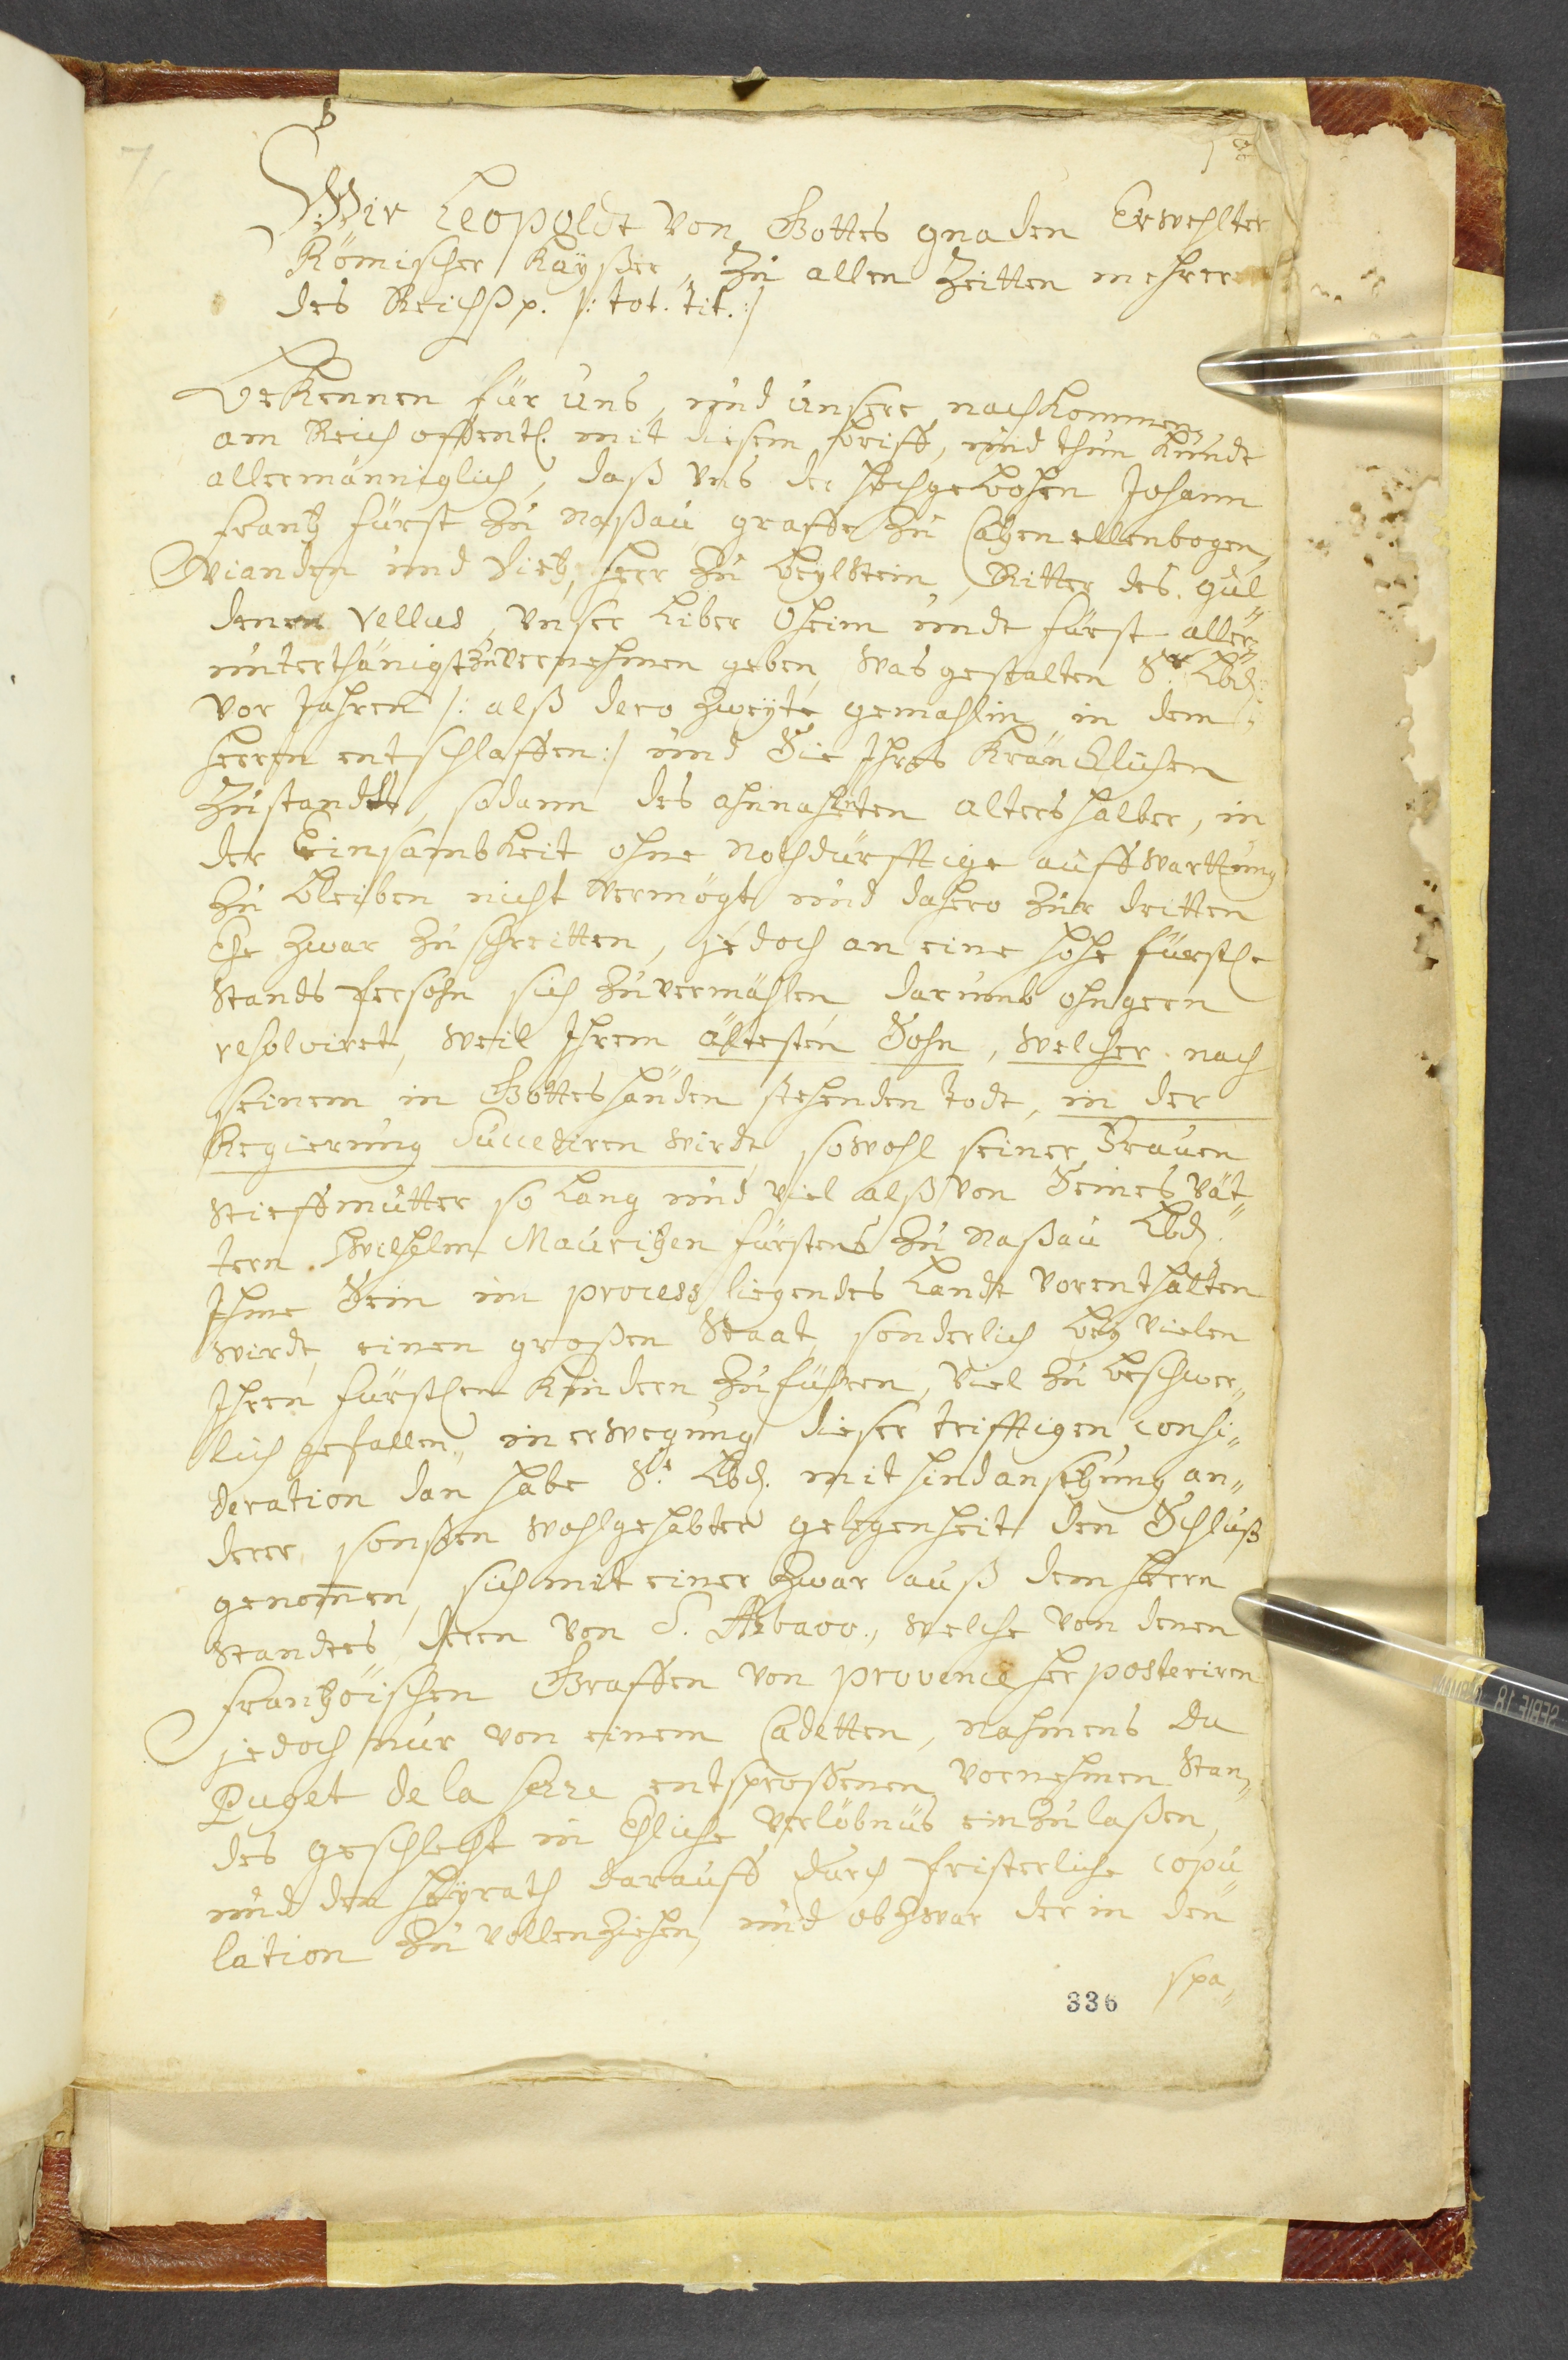 Wir Leopoldt von Gottes gnaden Erwehlter
Römischer Kaÿßer, Zu allen Zeitten mehrer
des Reichß p. /: tot. tit. :/
Bekennen für uns, und unsere nachkommen,
am Reich offentl. mit diesem brieff, und thun kundt
allermänniglich, daß vns der hochgebohrn Johann
frantz fürst zu Naßau graffe zu Catzenellenbogen,
Vianden und Dietz, herr zu beylstein, Ritter des gül„
denen Vellus, vnser liber Oheim undt fürst aller„
unterthänigst zuvernehmen geben, was gestalten Sr. Lbd.
vor Jahren /: alß dero zweÿte gemahlin in dem
herrn entschlaffen :/ und Sie Ihres kräncklichen
Zustandts, sodann des ahnnahenten alters halber, in
der Einsambkeit ohne nothdürfftige auffwarttung
zu bleiben nicht vermögt und dahero zur dritten
Ehe zwar zu schreitten, jedoch an eine hohe fürstl.
Stands Persohn sich zuvermählen darumb ohngern
resolviret, weil Ihrem ältesten Sohn, welcher nach
seinem in Gottes händen stehenden todt, in der
Regierung Succediren wirdt, sowohl seiner Frauen
Stieffmutter so lang und viel alß von Seines vät„
tern Wilhelm Mauritzen fürstens zu Naßau Lbd.
Ihme Sein im process liegendes Landt vorenthalten
wirdt, einen großen Staat, sonderlich bey vielen
Ihren fürstlen Kindern zuführen, viel zu beschwer„
lich gefallen, in erwegung dieser trifftigen consi„
deration dan habe Sr. Lbd. mit hindansetzung an„
derer, sonßen wohlgehabter gelegenheit den Schluß
genomen, sich mit einer zwar auß dem herrn
Standtes, deren von S. welche von denen
frantzöischen Graffen von provence her posteriren
jedoch nur von einem Cadetten, nahmens du
Puget de la serre entsproßenen vornehmen Stan„
des geschlecht in Ehliche verlöbnüs einzulaßen,
und den heÿrath darauff durch Pristerliche copu„
lation zu vollenziehen, und obzwar der in den
spa„
336